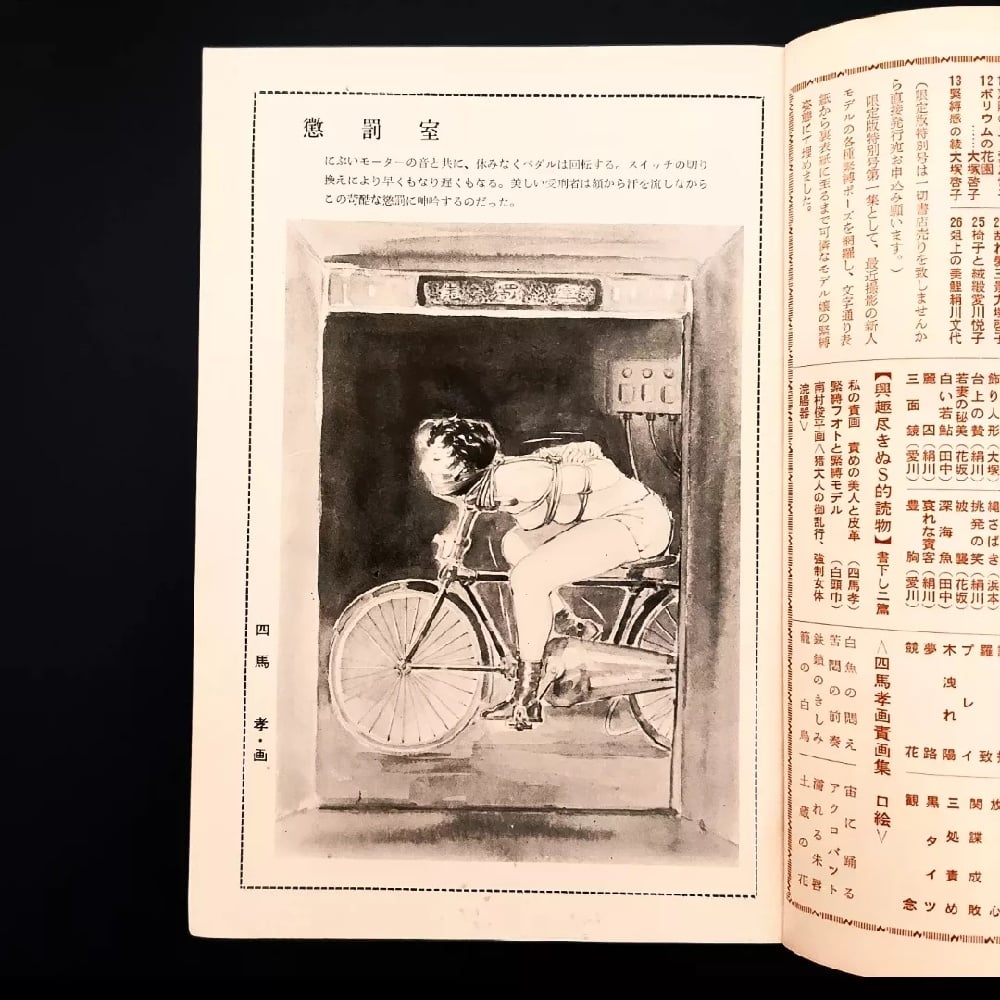 懲罰室
にぶいモーターの音と共に、休みなくペダルは回転する。スイッチの切り
換えにより早くもなり遅くもなる。美しい受刑者は額から汗を流しながら
この苛酷な懲罰に呻吟するのだった。
四馬 孝・画
12ボリウムの花園
……大塚啓子
13緊縛感の綾大塚啓子
25椅子と緘緞愛川悦子
26俎上の美鯉絹川文代
(限定版特別号は一切書店売りを致しませんか
ら直接発行宛お申込み願います。)
限定版特別号第一集として、最近撮影の新人
モデルの各種緊縛ポーズを網羅し、文字通り表
紙から裏表紙に至るまで可憐なモデル嬢の緊縛
姿態にて埋めました。
飾り人形(大塚
台上の贄(絹川)
若妻の秘美(花坂)
白い若鮎(田中)
麗囚(絹川)
三面鏡(愛川)
縄さばき(浜本
挑発の笑(絹川)
被襲(花坂)
深海魚(田中)
哀れな賓客(絹川)
豊胸(愛川)
【興趣尽きぬS的読物】書下し二篇
私の責画 責めの美人と皮革(四馬孝)
緊縛フオトと緊縛モデル(白頭巾)
南村俊平画<猪大人の御乱行、強制女体
浣腸器>
プレイ
木洩れ陽
夢路
競花
関諜成敗
三処責め
黒タイツ
観念
<四馬孝画責画集 口絵>
白魚の悶え
苦悶の前奏
鉄鎖のきしみ
籠の白鳥
宙に踊る
アクロバット
濡れる朱唇
土蔵の花